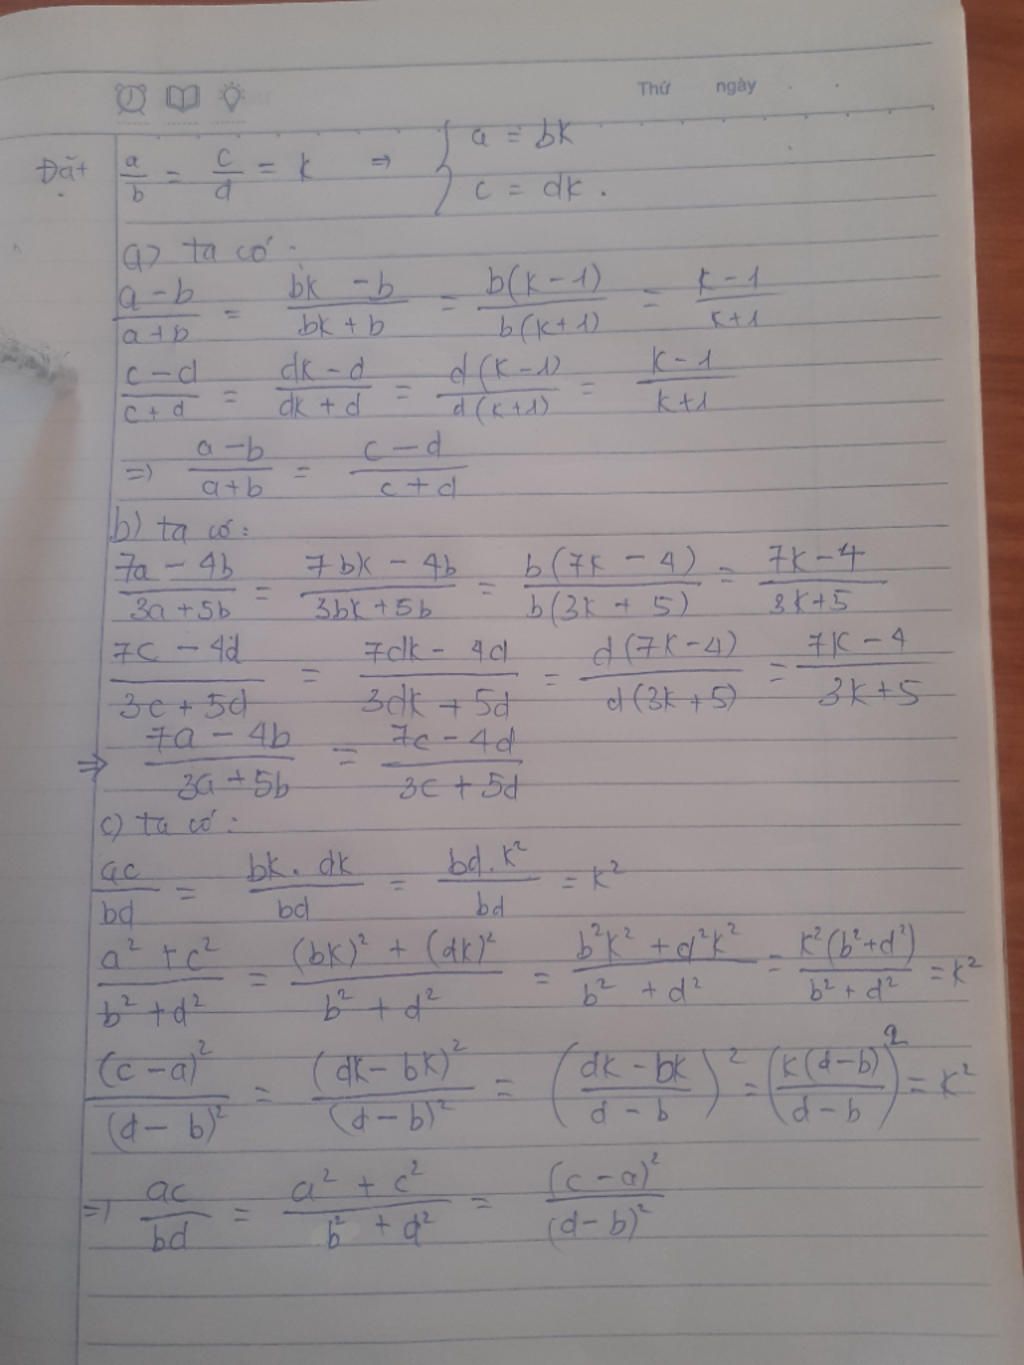 Thứ ngày
Đặt a/b = c/d = k => { a = bk
c = dk.
a) ta có:
(a - b)/(a + b) = (bk - b)/(bk + b) = b(k - 1)/b(k + 1) = (k - 1)/(k + 1)
(c - d)/(c + d) = (dk - d)/(dk + d) = d(k - 1)/d(k + 1) = (k - 1)/(k + 1)
=> (a - b)/(a + b) = (c - d)/(c + d)
b) ta có:
(7a - 4b)/(3a + 5b) = (7bk - 4b)/(3bk + 5b) = b(7k - 4)/b(3k + 5) = (7k - 4)/(3k + 5)
(7c - 4d)/(3c + 5d) = (7dk - 4d)/(3dk + 5d) = d(7k - 4)/d(3k + 5) = (7k - 4)/(3k + 5)
=> (7a - 4b)/(3a + 5b) = (7c - 4d)/(3c + 5d)
c) ta có:
ac/bd = bk.dk/bd = bd.k²/bd = k²
(a² + c²)/(b² + d²) = ((bk)² + (dk)²)/(b² + d²) = (b²k² + d²k²)/(b² + d²) = k²(b² + d²)/(b² + d²) = k²
(c - a)²/(d - b)² = (dk - bk)²/(d - b)² = ((dk - bk)/(d - b))² = (k(d - b)/(d - b))² = k²
=> ac/bd = (a² + c²)/(b² + d²) = (c - a)²/(d - b)²